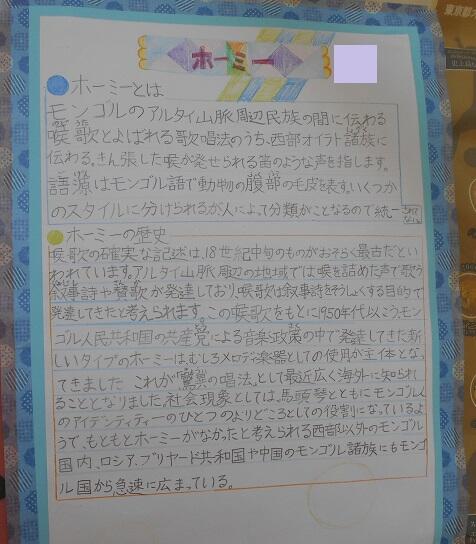 ホーミー
ホーミーとは
モンゴルのアルタイ山脈周辺民族の間に伝わる
喉歌とよばれる歌唱法のうち、西部オイラト諸族に
伝わる、きん張した喉が発せられる笛のような声を指します。
語源はモンゴル語で動物の腹部の毛皮を表す。いくつか
のスタイルに分けられるが人によって分類がことなるので統一されてない。
ホーミーの歴史
喉歌の確実な記述は、18世紀中旬のものがおそらく最古だとい
われています。アルタイ山脈周辺の地域では喉を詰めた声で歌う
叙事詩や賛歌が発達しており、喉歌は叙事詩をそうしょくする目的で
発達してきたと考えられます。この喉歌をもとに1950年代以こうモン
ゴル人民共和国の共産党による音楽政策の中で発達してきた新
しいタイプのホーミーはむしろメロディ楽器としての使用が主体となっ
てきました これが「驚異の唱法」として最近広く海外に知られ
ることとなりました。社会現象としては、馬頭琴とともにモンゴル人
のアイデンティティーのひとつのよりどころとしての役割になっているよ
うで、もともとホーミーがなかったと考えられる西部以外のモンゴル
国内、ロシア、ブリヤード共和国や中国のモンゴル諸族にもモンゴ
ル国から急速に広まっている。
東京都